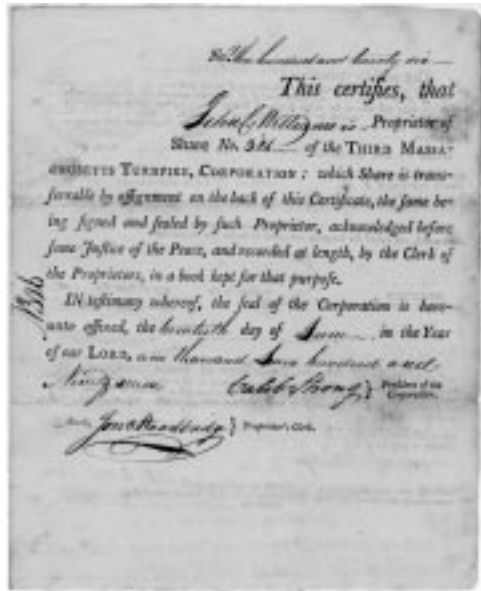 No. Three hundred and twenty six
This certifies, that
John C. Williams is Proprietor of
Share No. 326 of the THIRD MASSA-
CHUSETTS TURNPIKE CORPORATION; which Share is trans-
ferrable by assignment on the back of this Certificate, the same be-
ing signed and sealed by such Proprietor, acknowledged before
some Justice of the Peace, and recorded at length, by the Clerk of
the Proprietors, in a book kept for that purpose.
IN testimony whereof, the seal of the Corporation is here-
unto affixed, the twentieth day of June in the Year
of our LORD, one thousand seven hundred and
Ninety seven
Caleb Strong } President of the
Corporation.
} Proprietors Clerk.